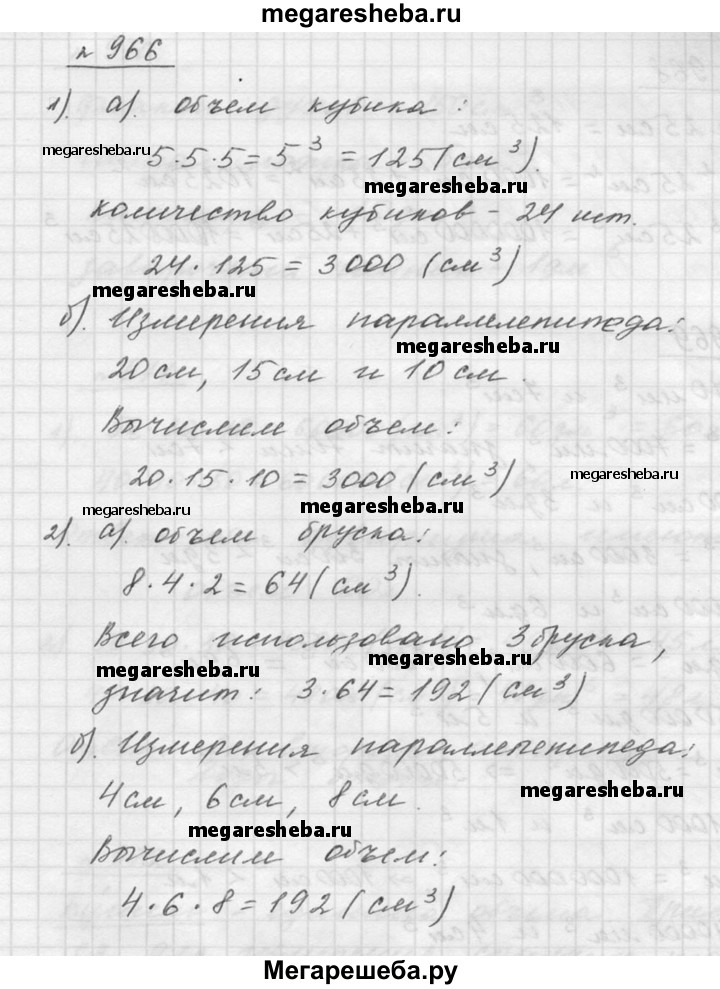 megaresheba.ru
№ 966
1). а). объём кубика:
megaresheba.ru
5·5·5=5³=125(см³).
megaresheba.ru
количество кубиков - 24 шт.
24·125=3000 (см³)
megaresheba.ru
б). Измерения параллелепипеда:
megaresheba.ru
20см, 15см и 10см.
Вычислим объем:
20·15·10=3000(см³)
megaresheba.ru
megaresheba.ru
megaresheba.ru
2). а). объем бруска:
8·4·2=64(см³).
Всего использовано 3 бруска,
megaresheba.ru
megaresheba.ru
значит: 3·64=192(см³)
б). Измерения параллелепипеда:
4см, 6см, 8см.
megaresheba.ru
megaresheba.ru
Вычислим объем:
4·6·8=192(см³)
Мегарешеба.ру